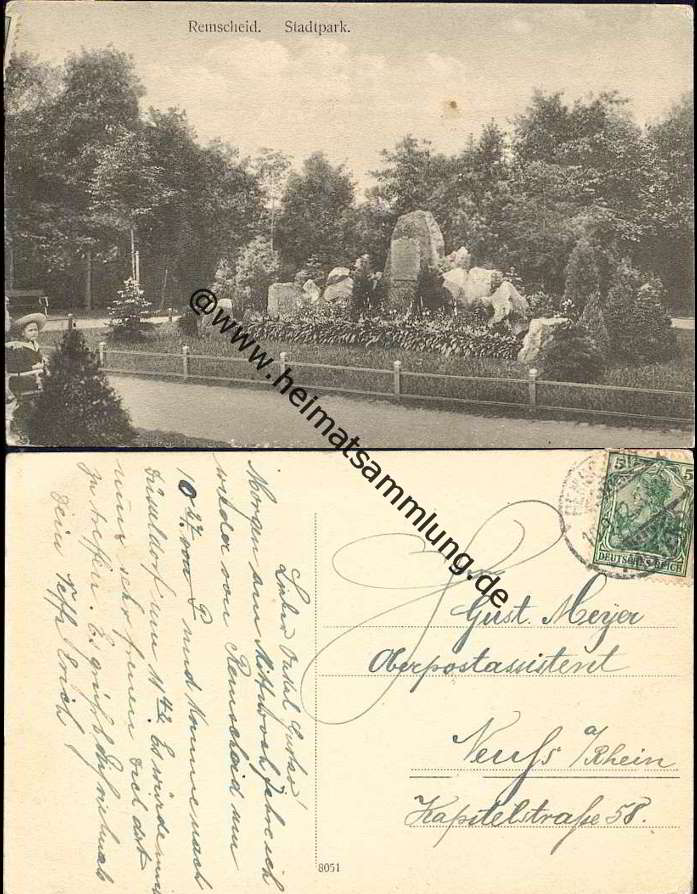 Remscheid. Stadtpark.
@www.heimatsammlung.de
5 5
DEUTSCHES REICH
Gust. Meyer
Oberpostassistent
Neuss a/Rhein
Kapitelstraße 58.
Lieber Onkel Gustav!
Morgen am Mittwoch fahre ich
wieder von Remscheid um
10 27 vom und komme nach
Düsseldorf um 11 42. Es würde mich
nun sehr freuen dich dort
zu treffen. Es grüßt
Dein Neffe Erich
8051